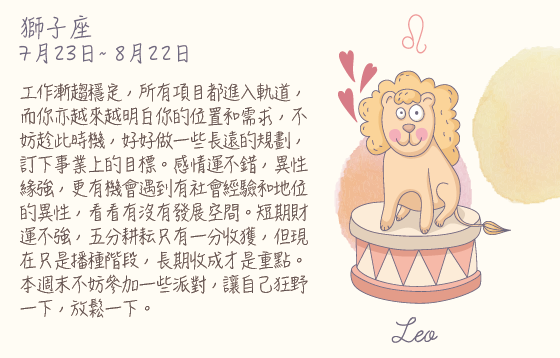 獅子座
7月23日~ 8月22日
工作漸趨穩定，所有項目都進入軌道，
而你亦越來越明白你的位置和需求，不
妨趁此時機，好好做一些長遠的規劃，
訂下事業上的目標。感情運不錯，異性
緣強，更有機會遇到有社會經驗和地位
的異性，看看有沒有發展空間。短期財
運不強，五分耕耘只有一分收獲，但現
在只是播種階段，長期收成才是重點。
本週末不妨參加一些派對，讓自己狂野
一下，放鬆一下。
Leo